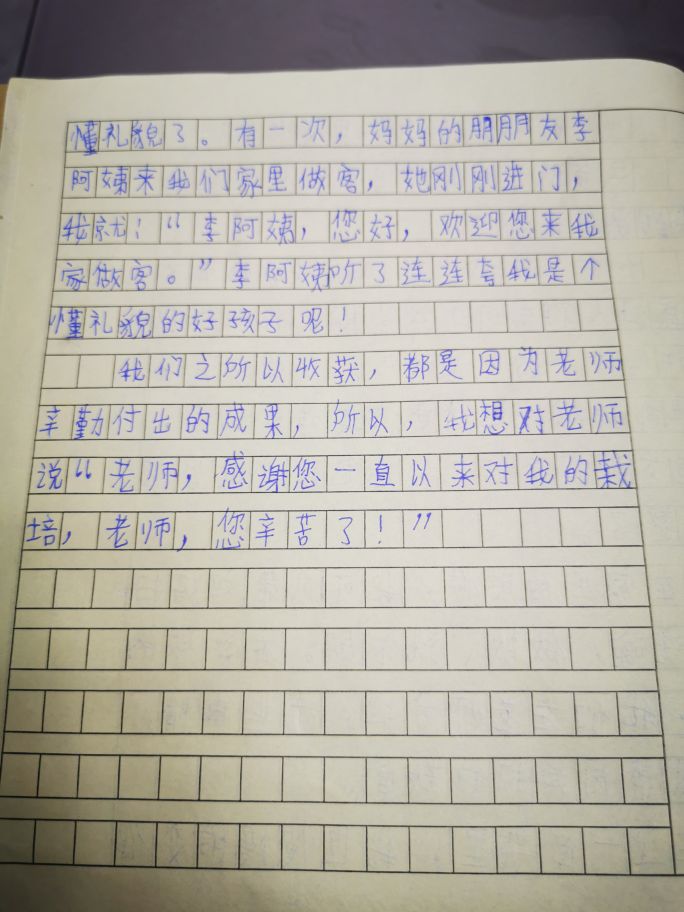 懂礼貌了。有一次，妈妈的朋朋友李
阿姨来我们家里做客，她刚刚进门，
我就！“李阿姨，您好，欢迎您来我
家做客。”李阿姨听了连连夸我是个
懂礼貌的好孩子呢！
我们之所以收获，都是因为老师
辛勤付出的成果，所以，我想对老师
说“老师，感谢您一直以来对我的栽
培，老师，您辛苦了！”